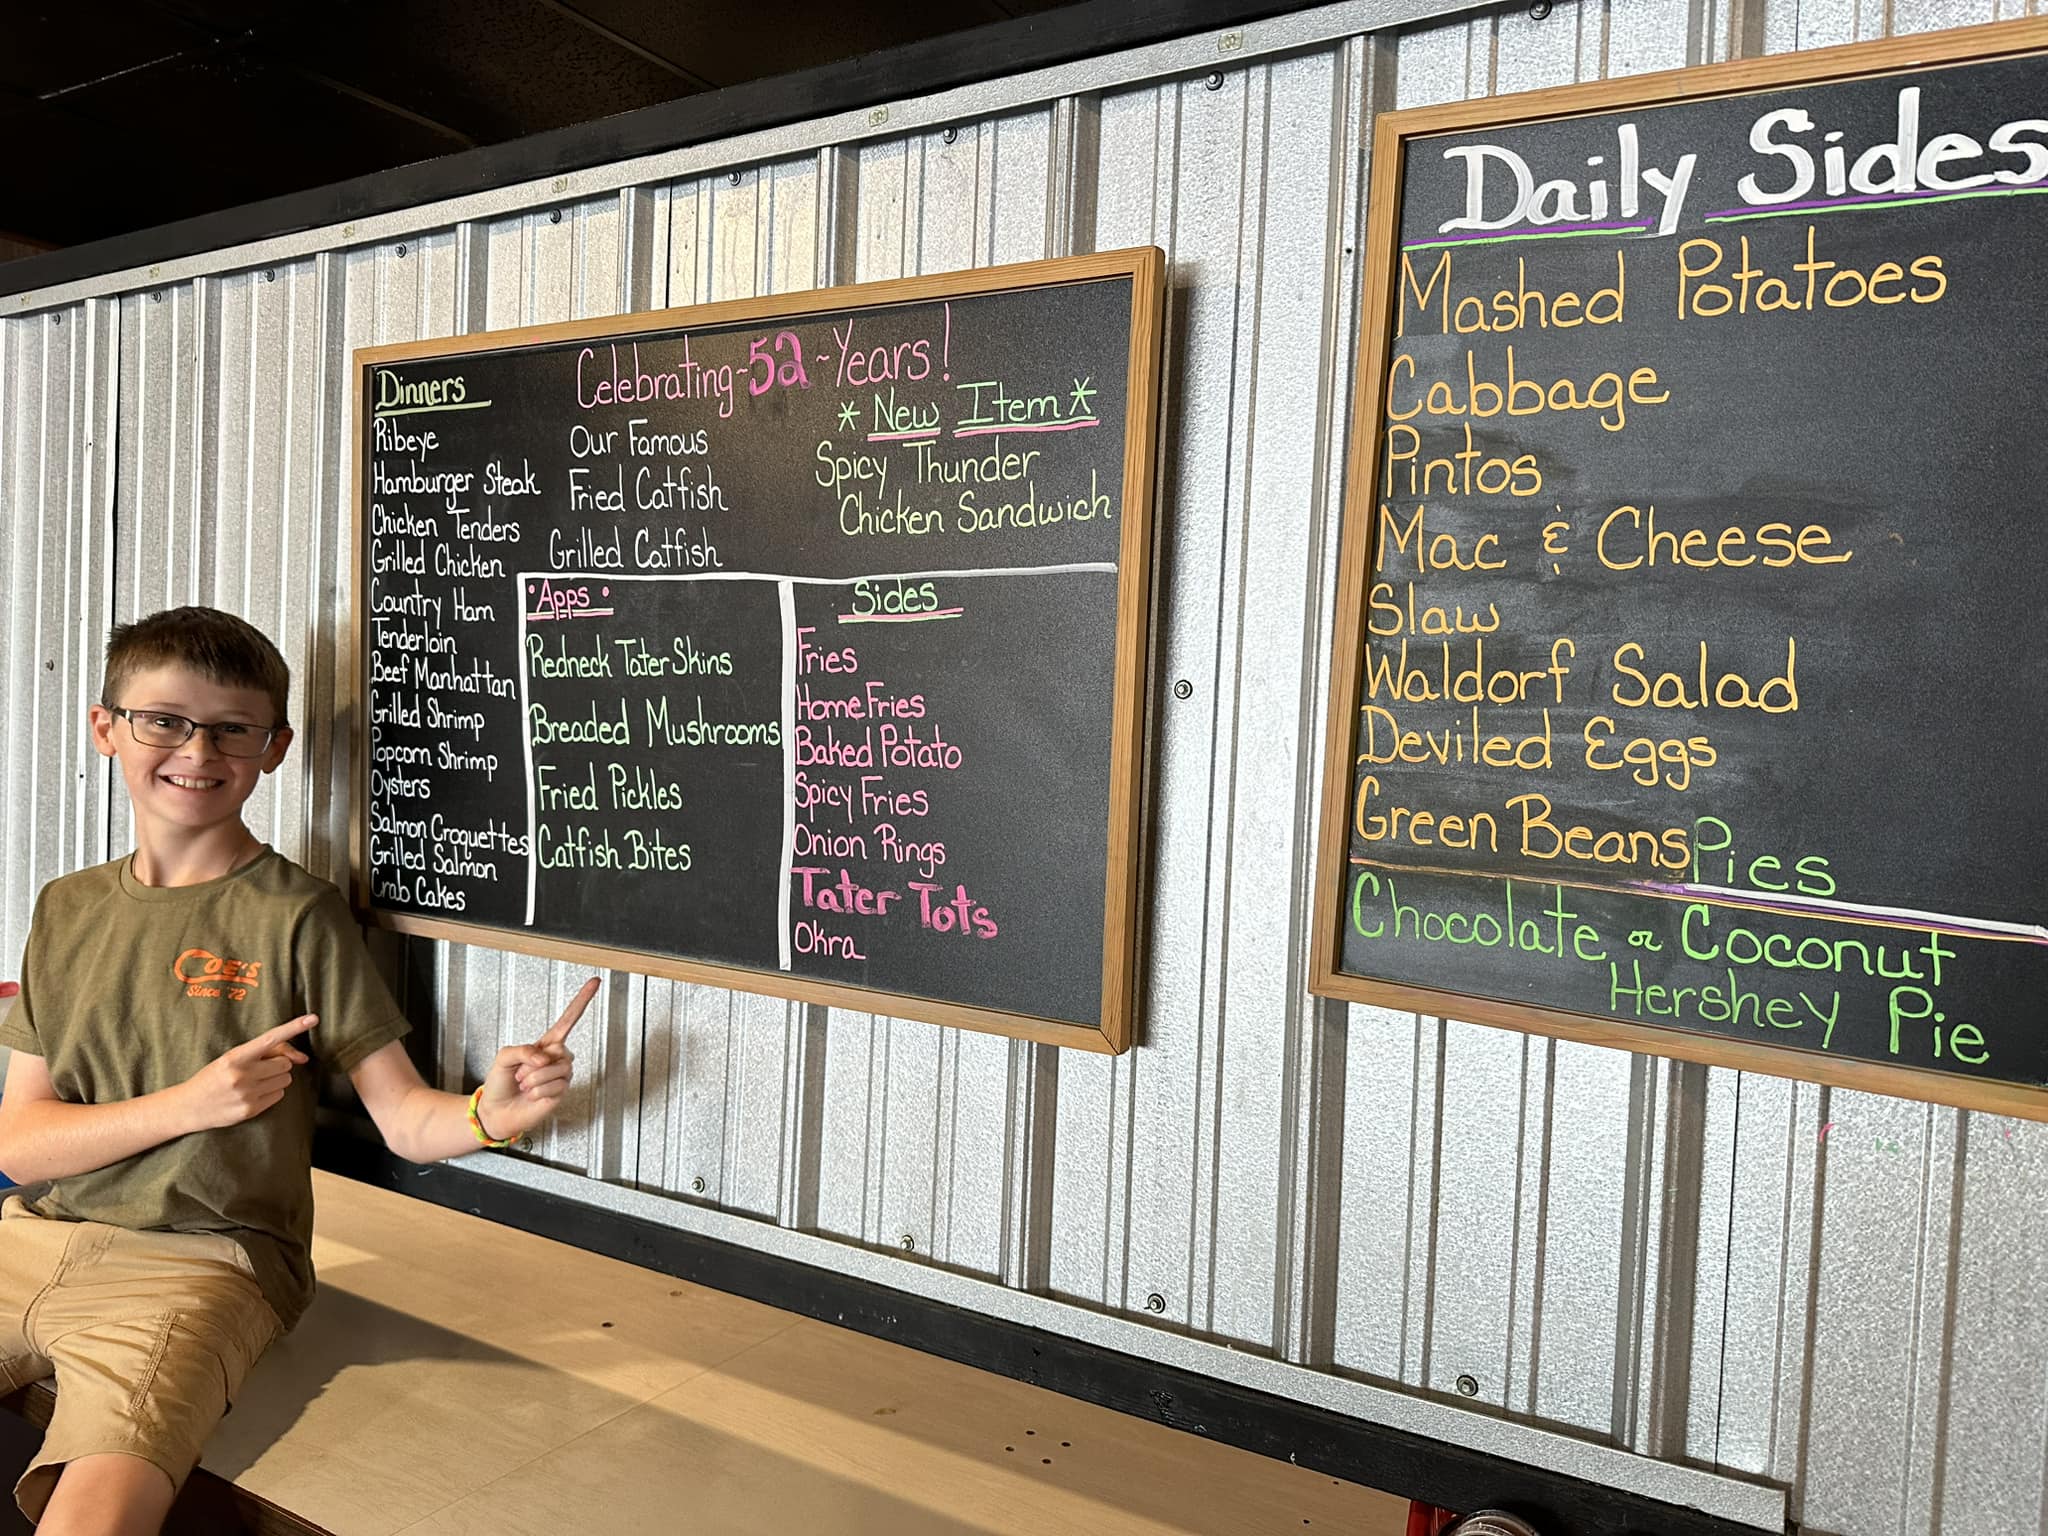 Celebrating~52~Years!
Dinners
Ribeye
Hamburger Steak
Chicken Tenders
Grilled Chicken
Country Ham
Tenderloin
Beef Manhattan
Grilled Shrimp
Popcorn Shrimp
Oysters
Salmon Croquettes
Grilled Salmon
Crab Cakes
Our Famous
Fried Catfish
Grilled Catfish
* New Item *
Spicy Thunder
Chicken Sandwich
• Apps •
Redneck Tater Skins
Breaded Mushrooms
Fried Pickles
Catfish Bites
Sides
Fries
Home Fries
Baked Potato
Spicy Fries
Onion Rings
Tater Tots
Okra
Daily Sides
Mashed Potatoes
Cabbage
Pintos
Mac & Cheese
Slaw
Waldorf Salad
Deviled Eggs
Green Beans
Pies
Chocolate or Coconut
Hershey Pie
COE'S
Since '72